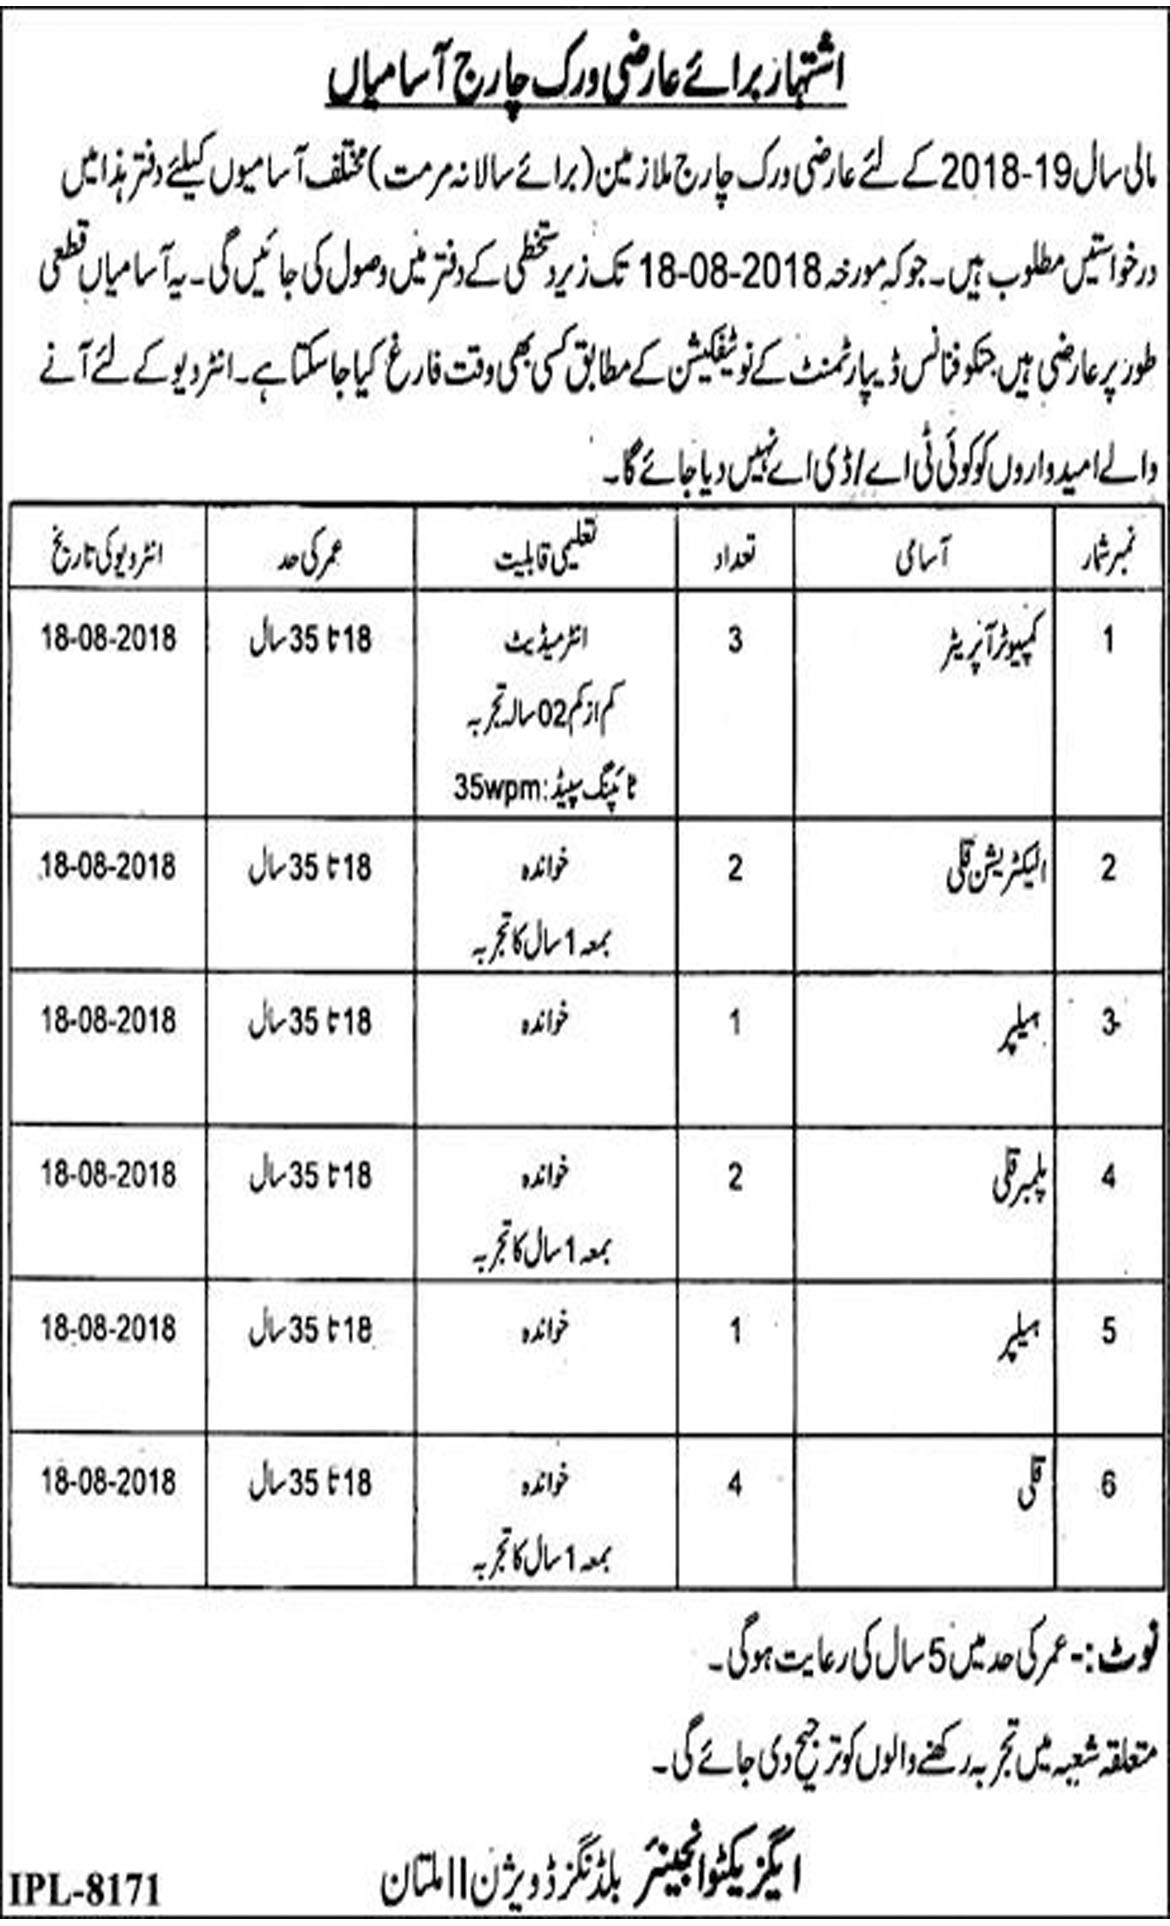 اشتہار برائے عارضی ورک چارج آسامیاں
مالی سال 19-2018 کے لئے عارضی ورک چارج ملازمین (برائے سالانہ مرمت) مختلف آسامیوں کیلئے دفتر ہذا میں
درخواستیں مطلوب ہیں۔ جو کہ مورخہ 18-08-2018 تک زیر دستخطی کے دفتر میں وصول کی جائیں گی۔ یہ آسامیاں قطعی
طور پر عارضی ہیں جنکو فنانس ڈیپارٹمنٹ کے نوٹیفکیشن کے مطابق کسی بھی وقت فارغ کیا جا سکتا ہے۔ انٹرویو کے لئے آنے
والے امیدواروں کو کوئی ٹی اے/ڈی اے نہیں دیا جائے گا۔
نمبر شمار آسامی تعداد تعلیمی قابلیت عمر کی حد انٹرویو کی تاریخ
1 کمپیوٹر آپریٹر 3 انٹرمیڈیٹ 18 تا 35 سال 18-08-2018
کم از کم 02 سالہ تجربہ
ٹائپنگ سپیڈ: 35wpm
2 الیکٹریشن قلی 2 خواندہ 18 تا 35 سال 18-08-2018
بمعہ 1 سال کا تجربہ
3 ہیلپر 1 خواندہ 18 تا 35 سال 18-08-2018
4 پلمبر قلی 2 خواندہ 18 تا 35 سال 18-08-2018
بمعہ 1 سال کا تجربہ
5 ہیلپر 1 خواندہ 18 تا 35 سال 18-08-2018
6 قلی 4 خواندہ 18 تا 35 سال 18-08-2018
بمعہ 1 سال کا تجربہ
نوٹ:- عمر کی حد میں 5 سال کی رعایت ہوگی۔
متعلقہ شعبہ میں تجربہ رکھنے والوں کو ترجیح دی جائے گی۔
ایگزیکٹو انجینئر بلڈنگز ڈویژن II ملتان
IPL-8171